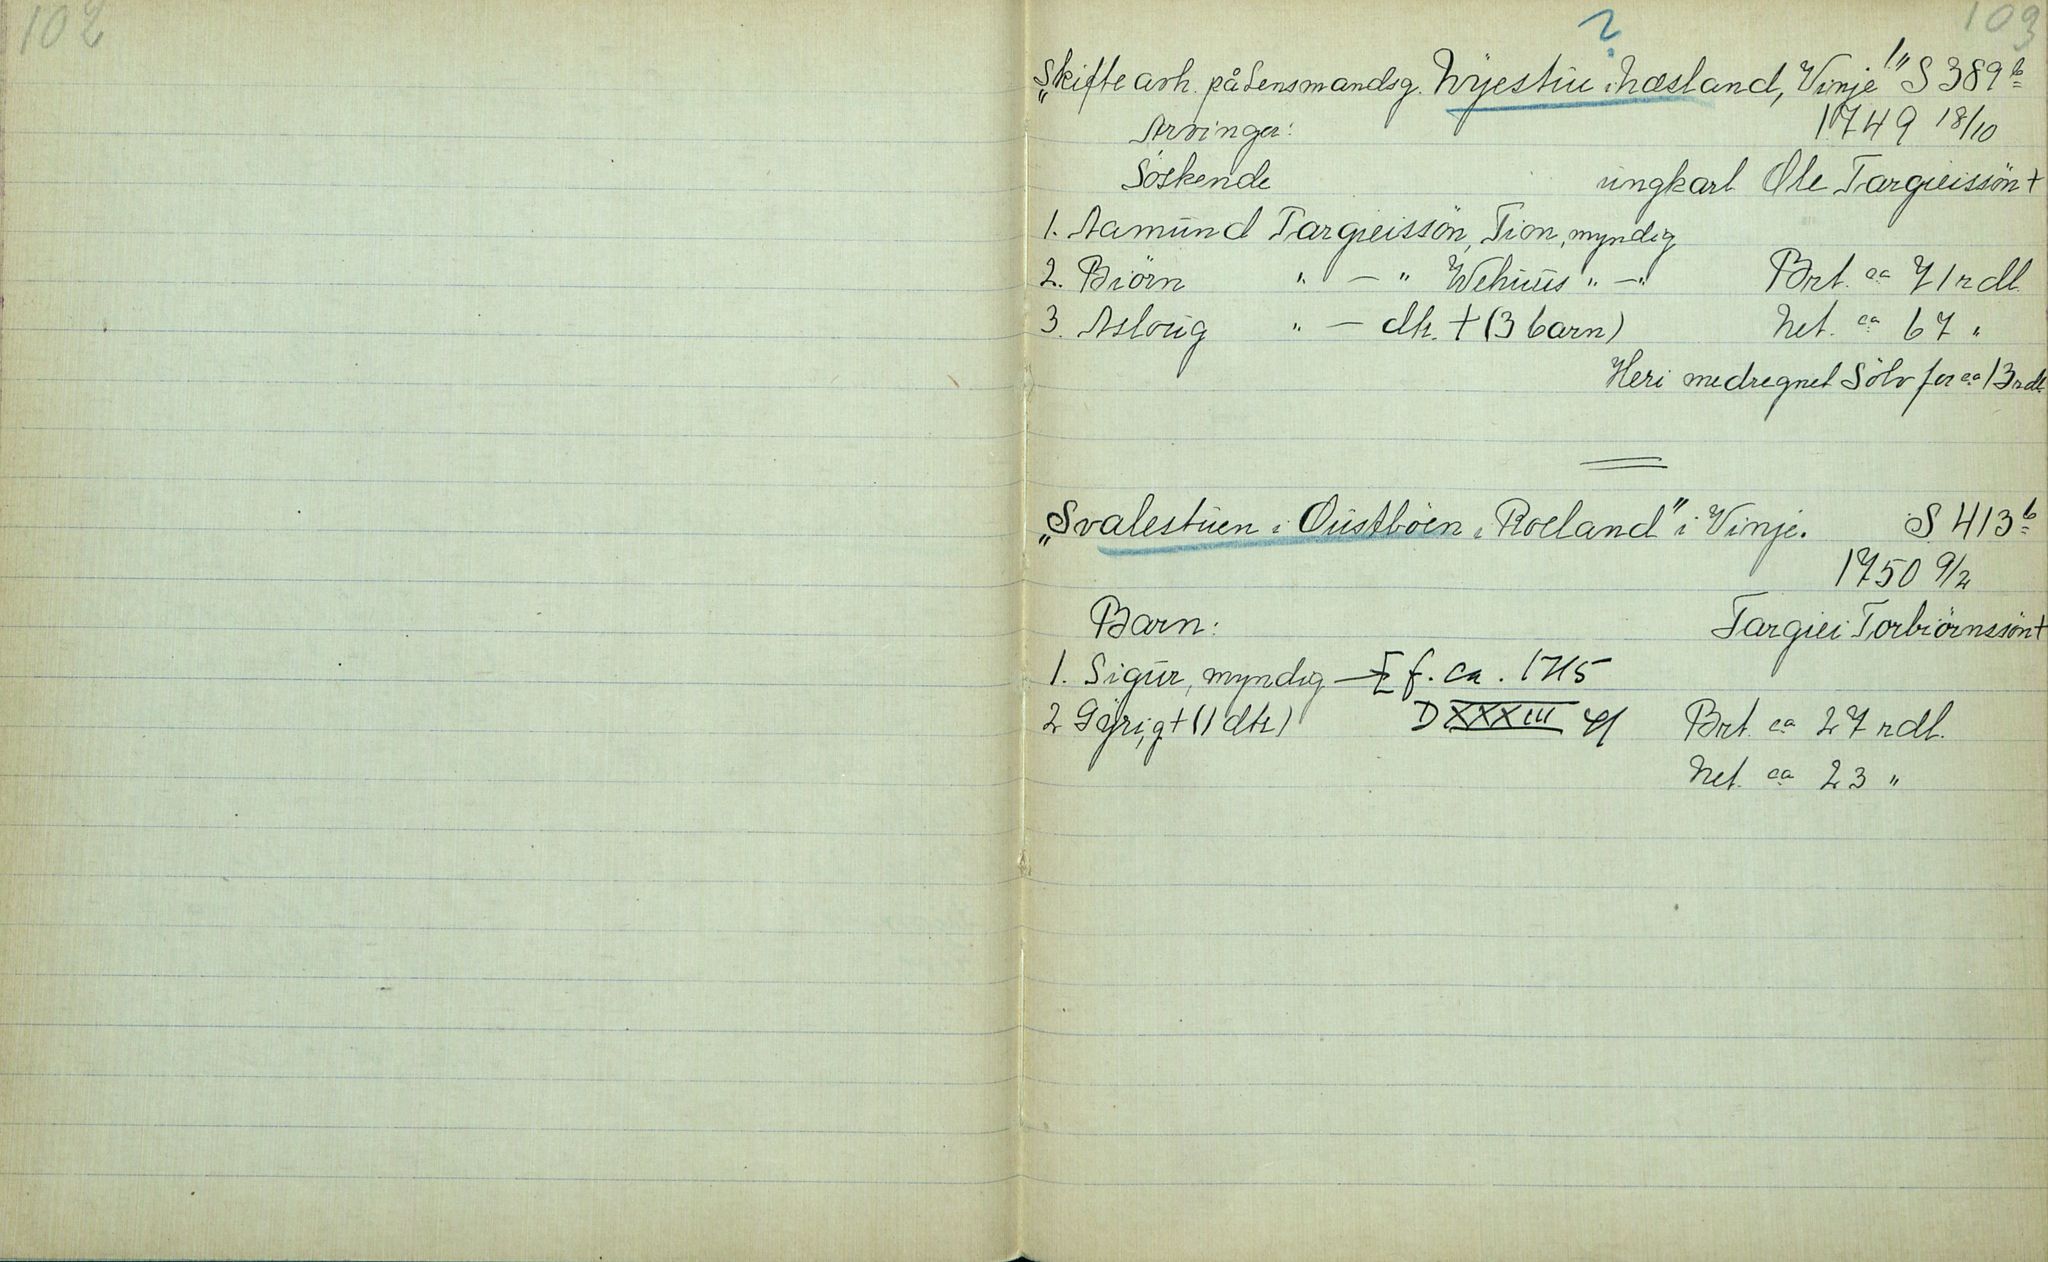 102
103
?
"Skifte avh. på Lensmandsg. Nyestuu i Næsland, Vinje" S 389 b
Arvinger: 1749 18/10
Söskende ungkarl Ole Targieissön +
1. Aamund Targieissön, Tion, myndig
2. Biörn " — " Wehuus " — " Brt. ca 71 rdl.
3. Asloug " — dtr. + (3 barn) Net. ca 67 "
Heri medregnet Sölv for ca 13 rdl.
"Svalestuen i Oustböen i Roeland" i Vinje. S 413 b
1750 9/2
Barn: Targiei Torbiörnssön +
1. Sigur, myndig — f. ca. 1715
2 Gyri, g + (1 dtr.) D XXXIII Brt. ca 27 rdl.
Net. ca 23 "